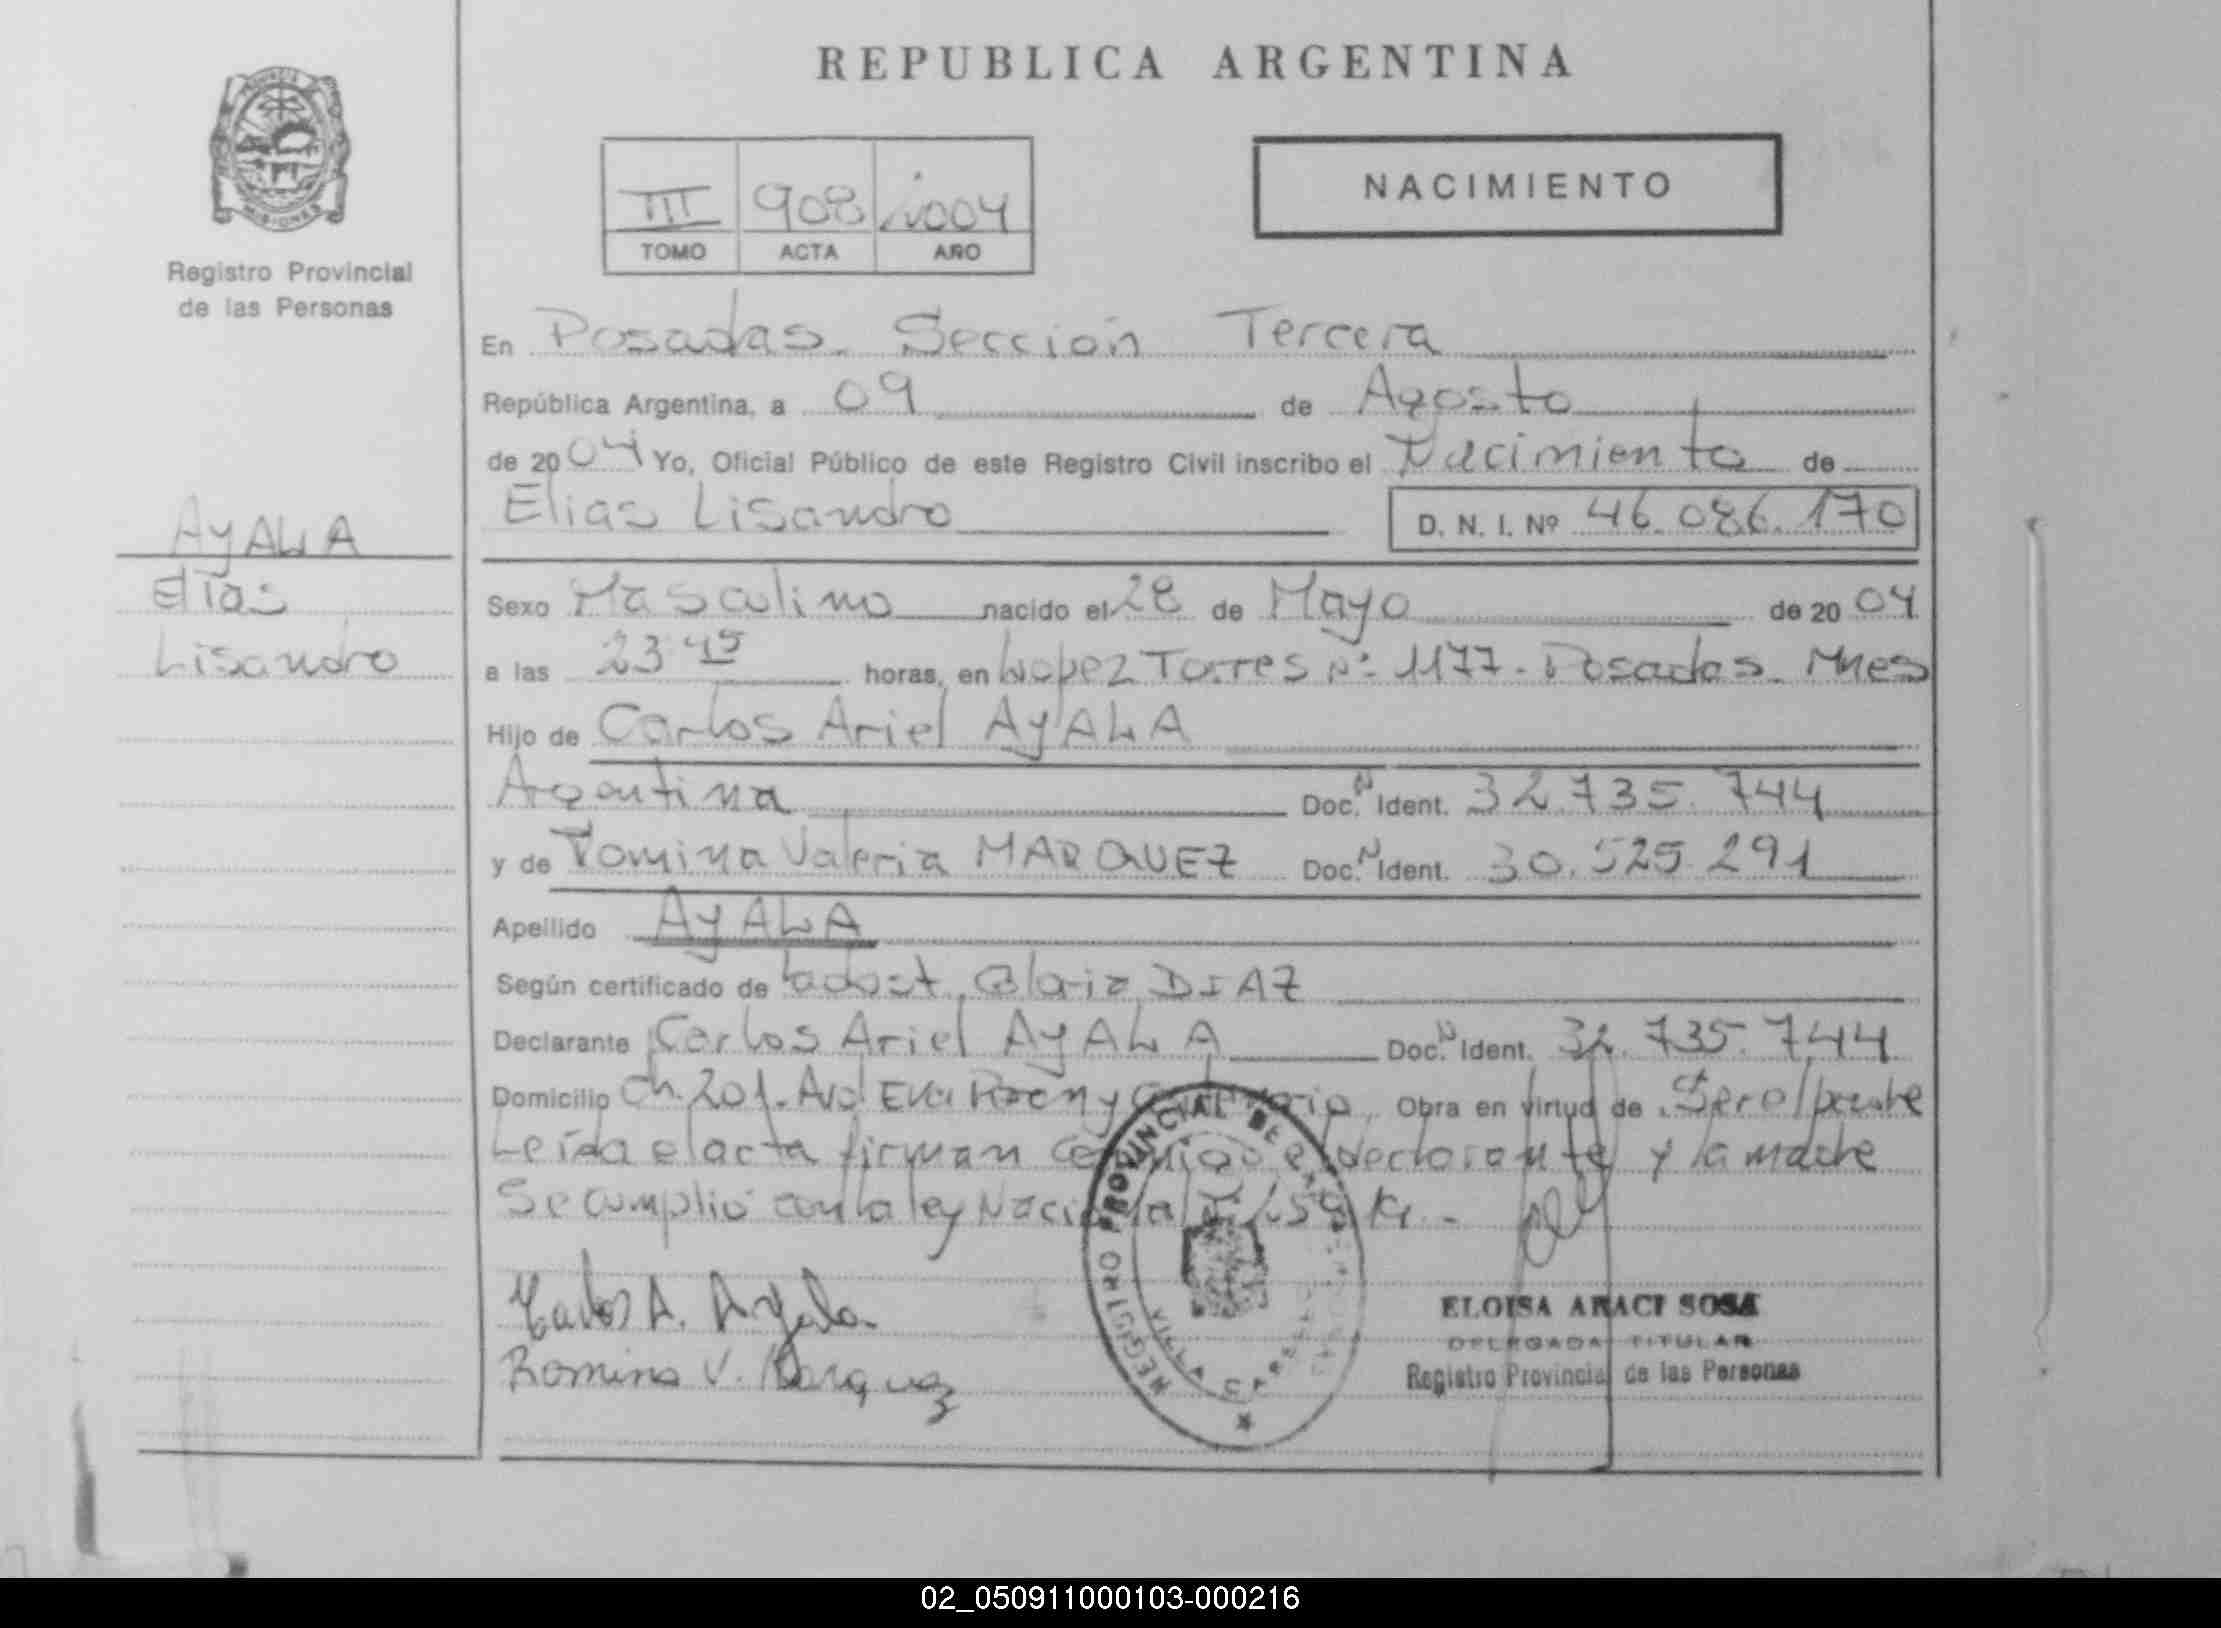 REPUBLICA ARGENTINA
PROVINCIA
MISIONES
Registro Provincial
de las Personas
III 908 2004
TOMO ACTA AÑO
NACIMIENTO
En Posadas. Sección Tercera
República Argentina, a 09 de Agosto
de 2004 Yo, Oficial Público de este Registro Civil inscribo el Nacimiento de
Elias Lisandro D. N. I. Nº 46.086.170
AYALA
Elias
Lisandro
Sexo Masculino nacido el 28 de Mayo de 2004
a las 23 45 horas, en Lopez Torres Nº 1177 - Posadas. Mnes
Hijo de Carlos Ariel AYALA
Argentina Doc. N Ident. 32.735.744
y de Romina Valeria MARQUEZ Doc. N Ident. 30.525.291
Apellido AYALA
Según certificado de DIAZ
Declarante Carlos Ariel AYALA Doc. N Ident. 32.735.744
Domicilio Ch. 201. Avd Eva y Obra en virtud de
Leída el acta firman el declarante y la madre
Se cumplió con la ley
Carlos A. Ayala
Romina V. Marquez
REGISTRO PROVINCIAL DE
ELOISA ARACI SOSA
DELEGADA TITULAR
Registro Provincial de las Personas
02_050911000103-000216